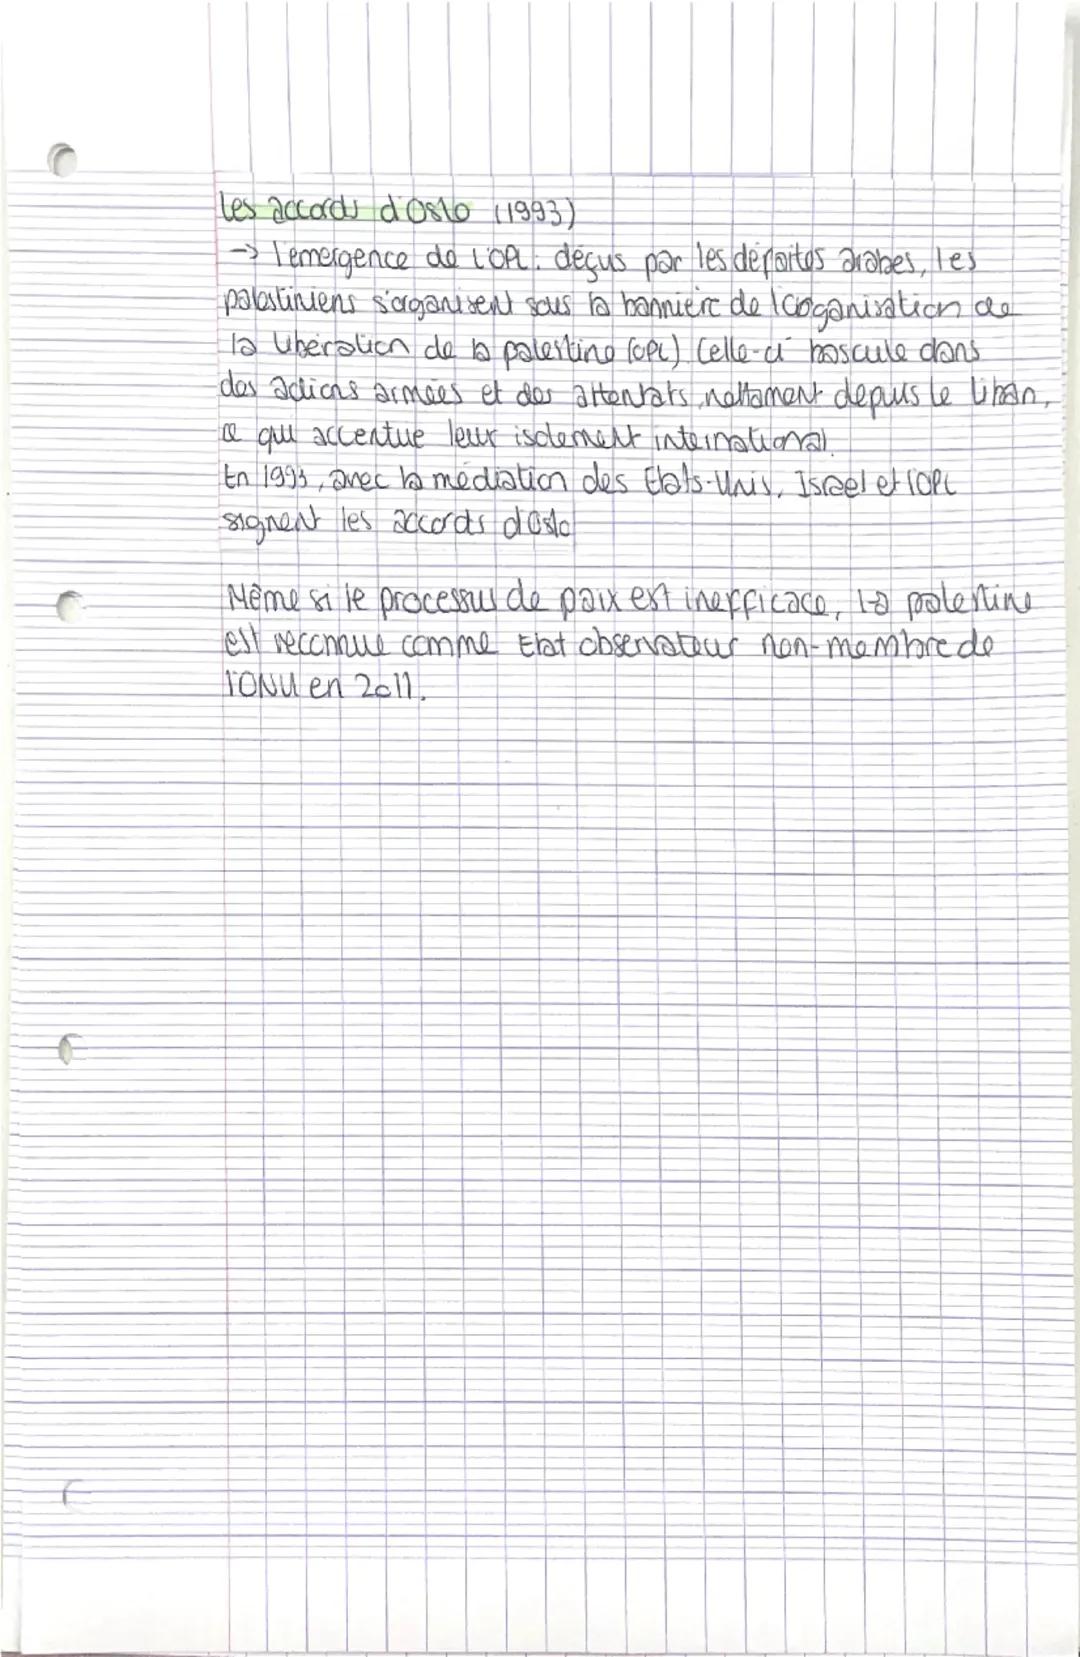 les accords d'Oslo (1993)
-> l'émergence de l'OPL : déçus par les défaites arabes, les
palestiniens s'organisent sous la bannière de l'organisation de
la libération de la palestine (OPL). Celle-ci bascule dans
des actions armées et des attentats, nottament depuis le Liban,
ce qui accentue leur isolement international.
En 1993, avec la médiation des Etats-Unis, Israel et l'OPL
signent les accords d'Oslo
Même si le processus de paix est inefficace, la palestine
est reconnue comme Etat observateur non-membre de
l'ONU en 2011.